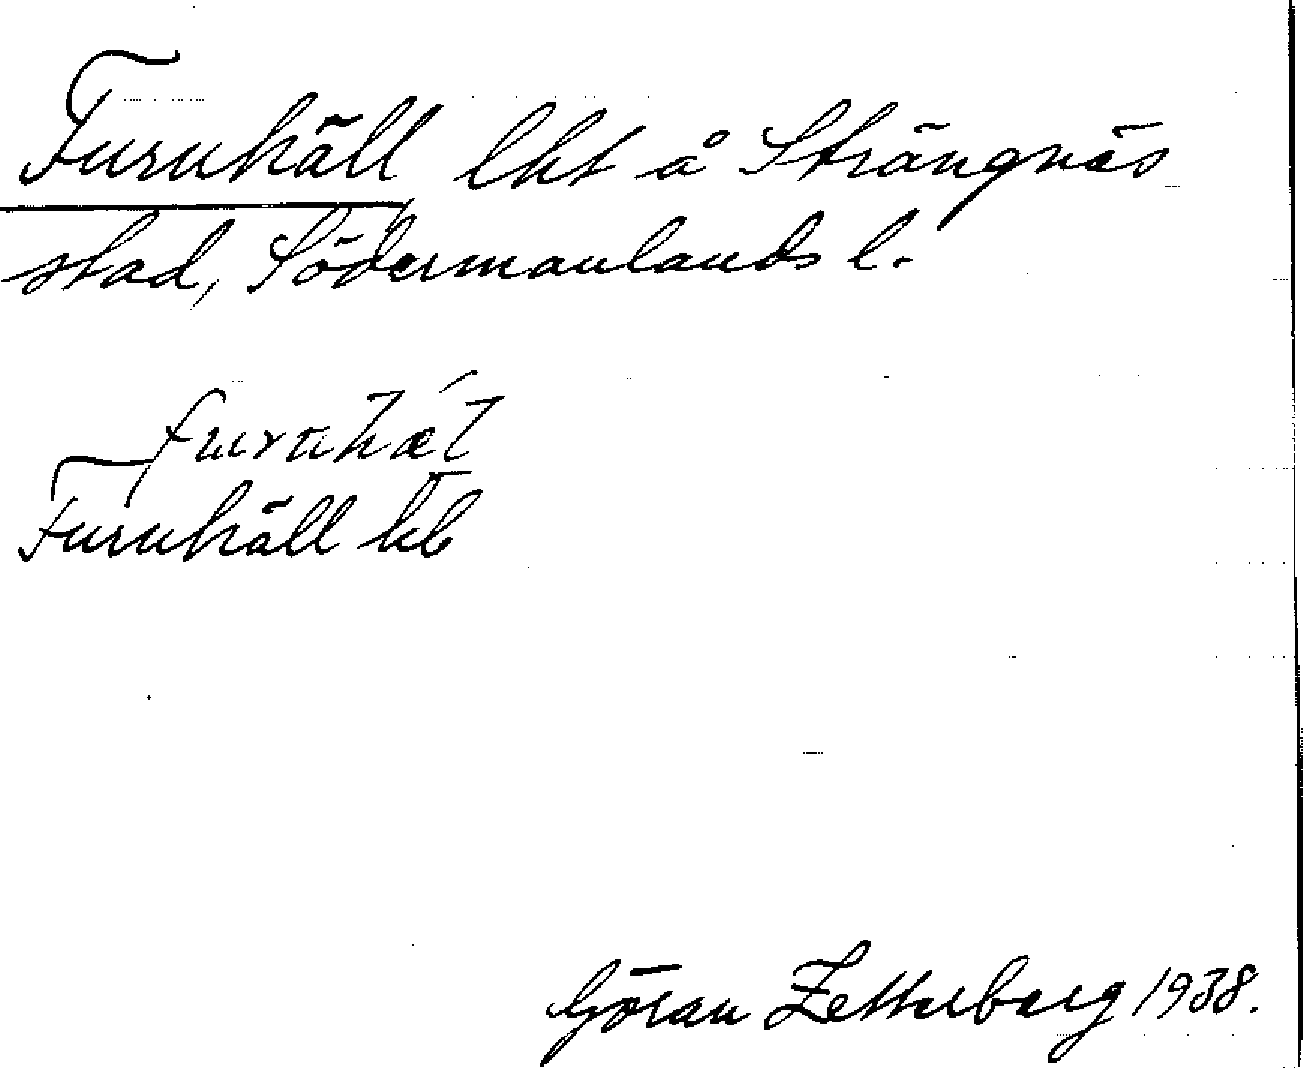 Furuhäll lht å Strängnäs
stad, Södermanlands l.
Furuhäll kb
Göran Zetterberg 1938.